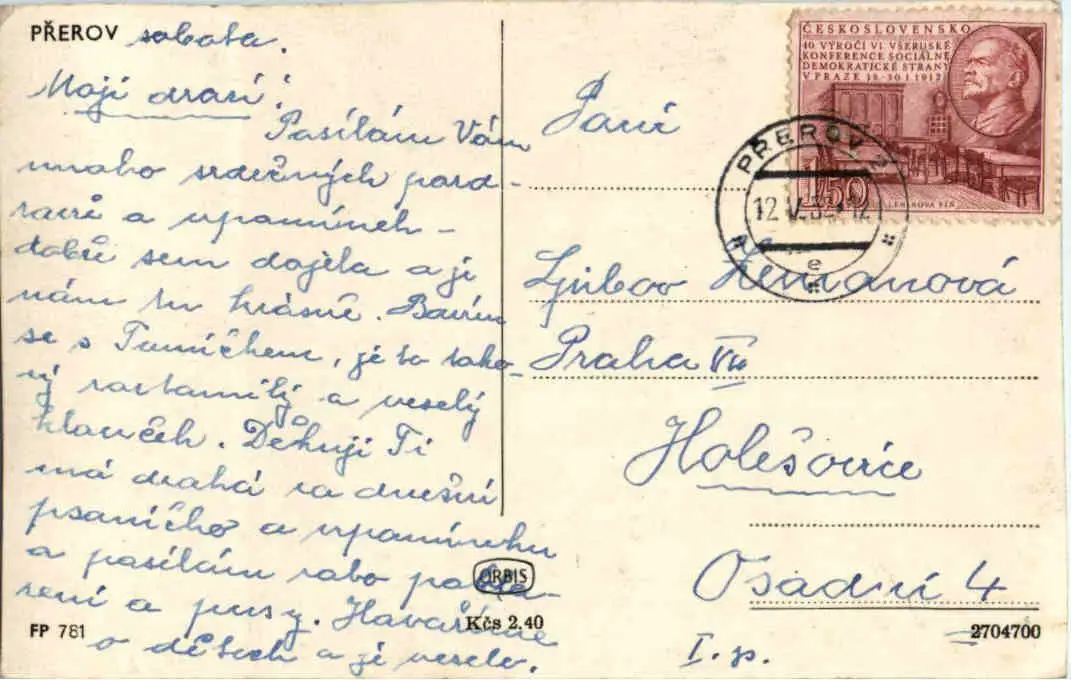 PŘEROV sobota.
Moji drazí!
Posílám Vám
mnoho srdečných pozd-
ravů a vzpomínek -
dobře sem dojela a je
nám tu krásně. Bavím
se s Tomíčkem, je to tako-
vý roztomilý a veselý
klouček. Děkuji Ti
má drahá za dnešní
psaníčko a vzpomínku
a posílám zabo
zení a pusy.
o dětech a je veselo.
FP 781
ORBIS
Kčs 2,40
ČESKOSLOVENSKO
40. VÝROČÍ VI. VŠERUSKÉ
KONFERENCE SOCIÁLNĚ
DEMOKRATICKÉ STRANY
V PRAZE 18.-30.I.1912
1,50
LENINOVA SÍŇ
PŘEROV 2
12.V.53-12
e
Paní
Ljubov Zemanová
Praha VII
Holešovice
Osadní 4
I. p.
2704700